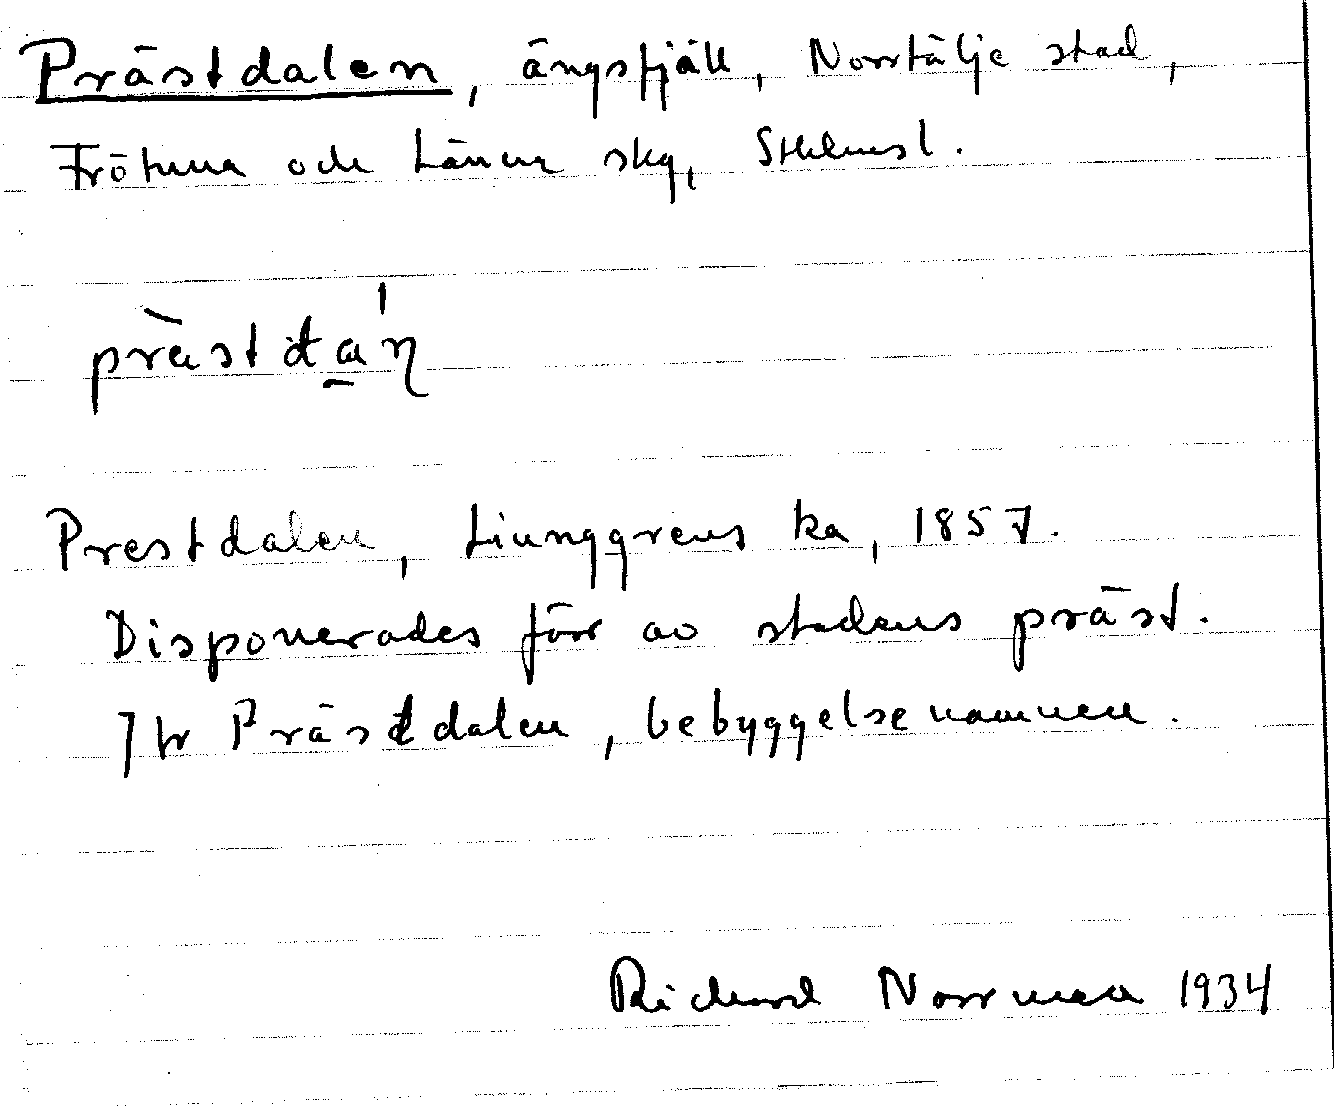 Prästdalen, ängsfjäll, Norrtälje stad,
Frötuna och Länna skg, Sthlmsl.
prästda'n
Prestdalen, Liunggrens ka, 1857.
Disponerades förr av stadens präst.
Jfr Prästdalen, bebyggelsenamnen.
Richard Norrman 1934